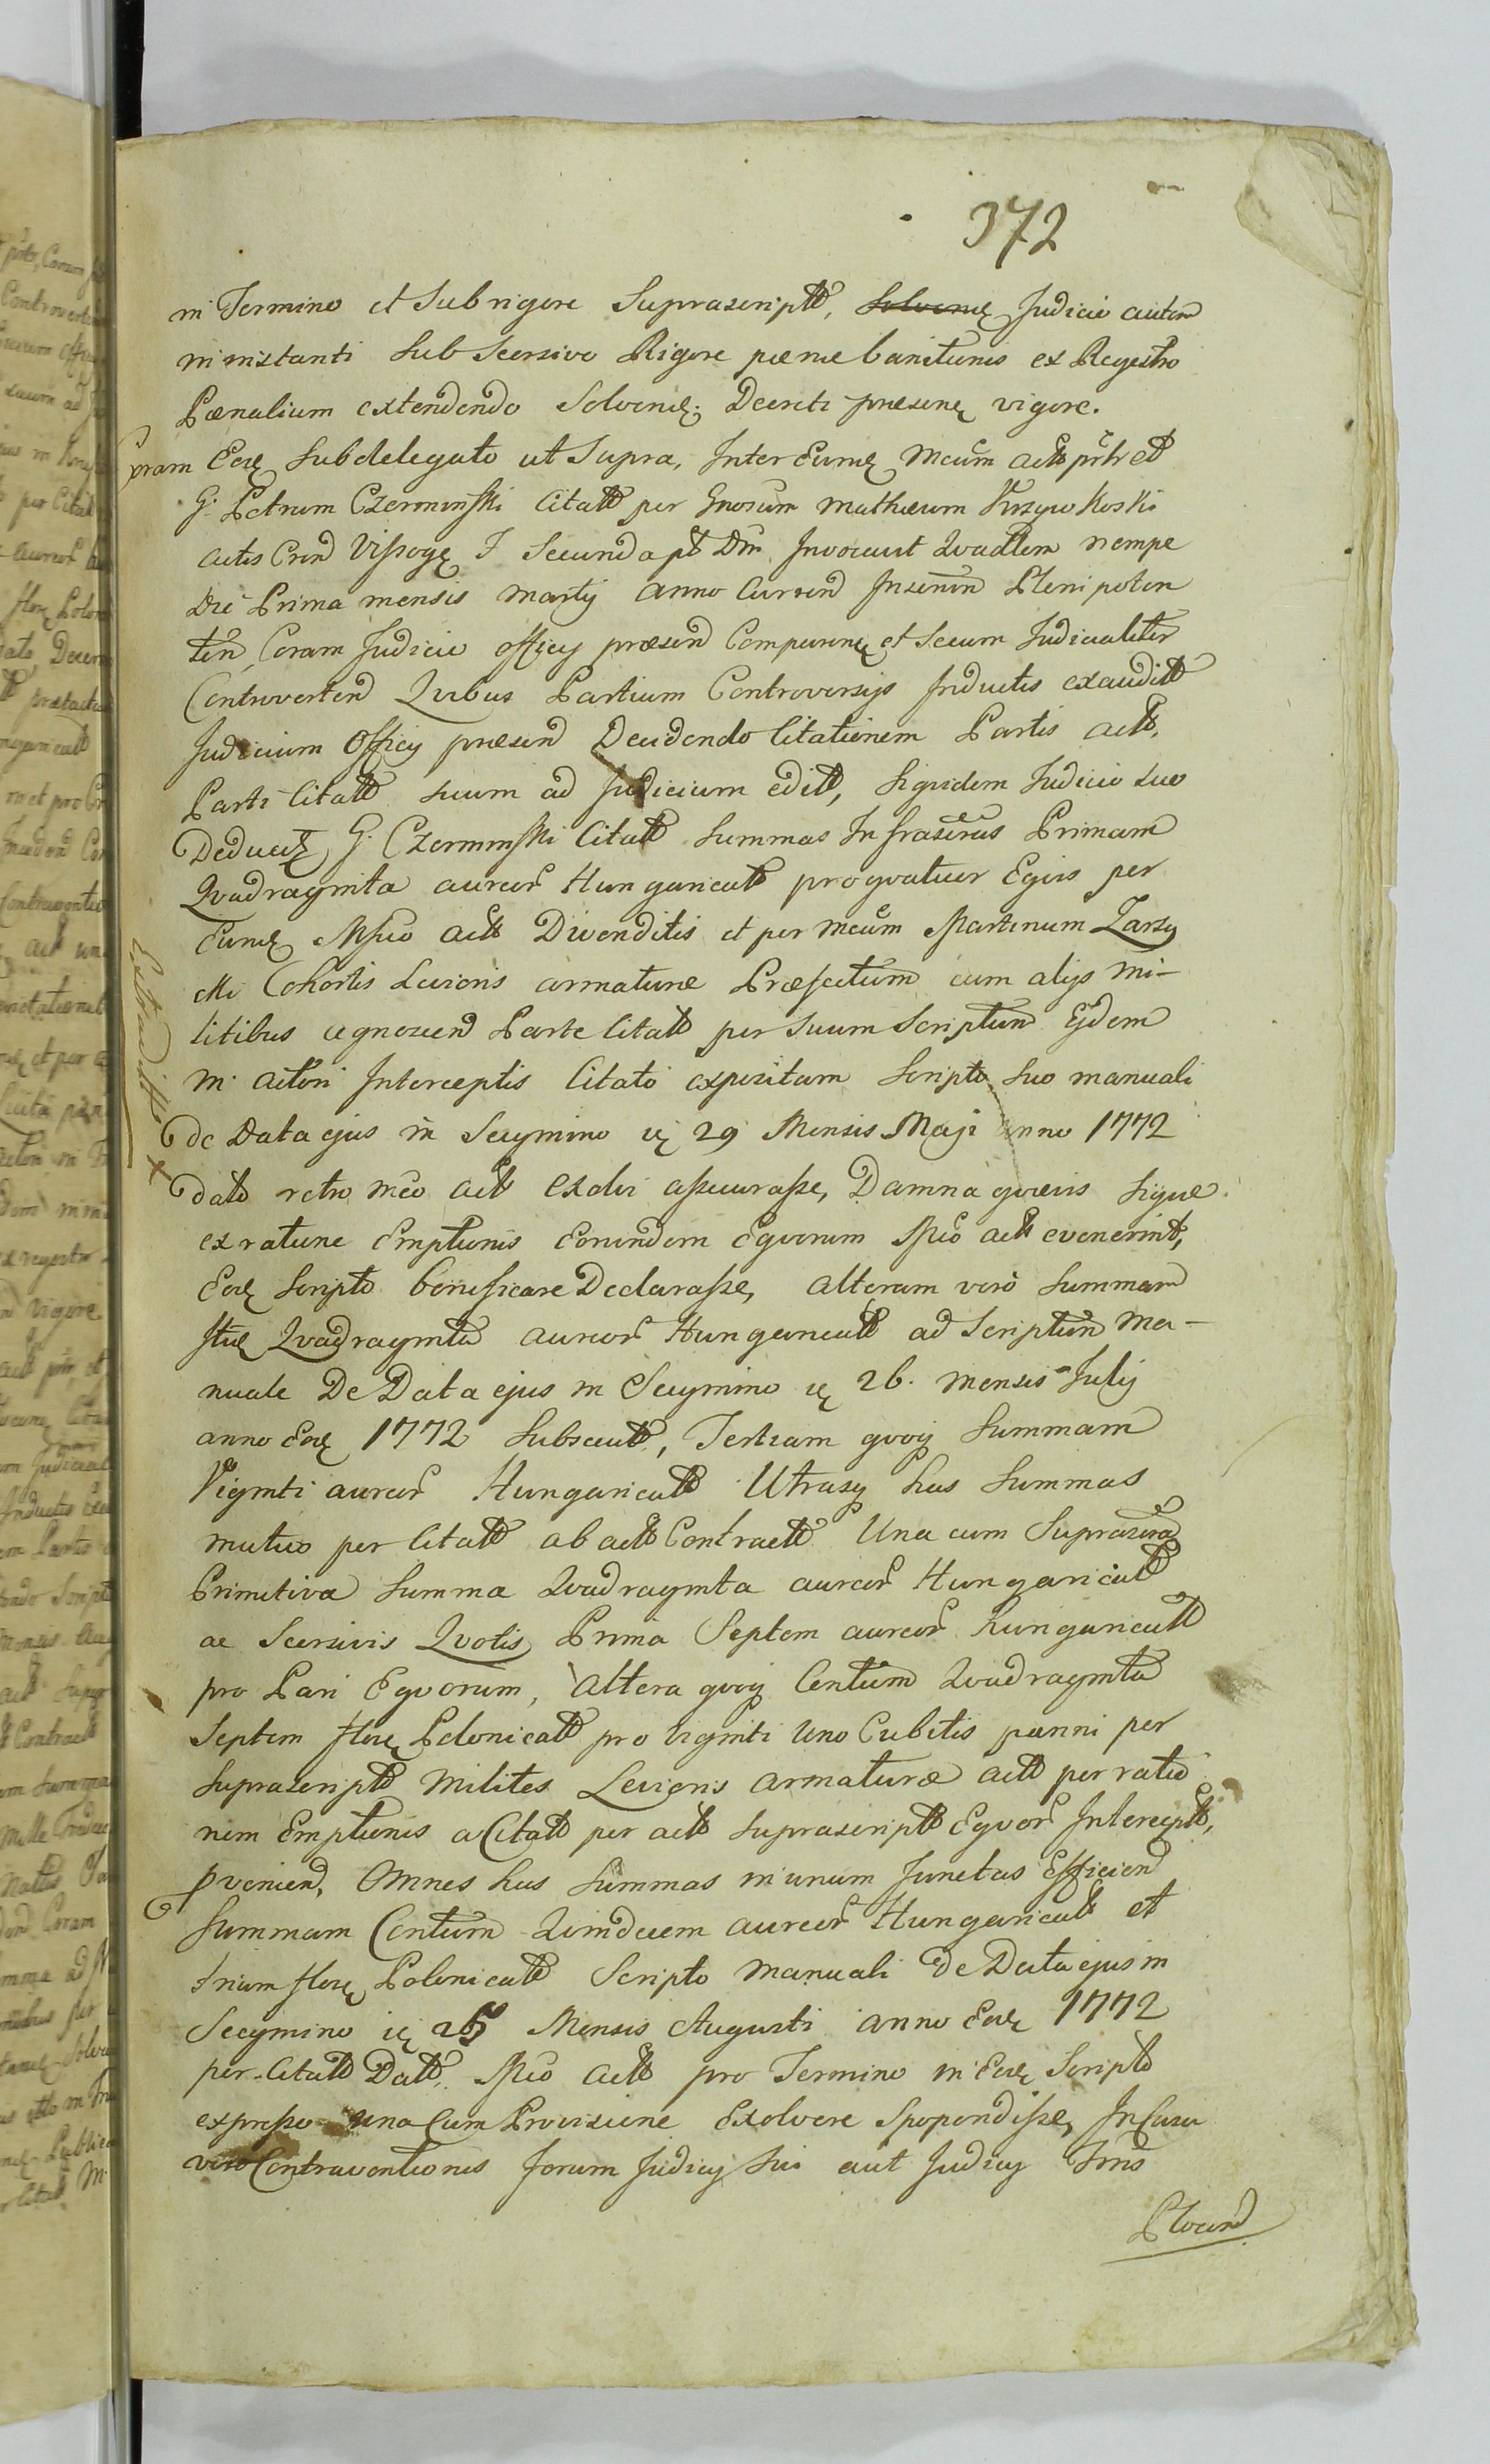 372
in Termino et Sub rigore Suprascriptt, Solvend Judicio autem
in instanti Sub Secersivo Rigore pænæ banitionis ex Regestro
Pænalium extendendo Solvend. Decreti præsend vigore.
Coram Eod Subdelegato ut Supra, Inter Eund Mcum actt pttr et
G. Petrum Czerminski Citatt per Gnosum Mathæum Krzywkoski
actis Crend Vissogr F Secunda pt Dni Invocavit Quadlem nempe
Die Prima mensis Martij Anno Currend Inserin Plenipoten
ten Coram Judicio officij præsend Comparend et Secum Judicialiter
Controvertend Quibus Partium Controversijs Inductis exauditt
Judicium Officij præsend Decidendo Citationem Partis actt,
Parti Citatt suum ad Judicium editt, Siquidem Judicio suo
Deduczt G. Czerminski Citatt Summas Infrascras Primam
Quadraginta aureor Hungaricatt pro qvatuor Eqvis per
Eund Mfico actt Divenditis et per Mcum Martinum Zarzy
cki Cohortis Levioris armaturæ Præfectum cum alijs mi-
litibus agnoscend Parte Citatt per Suum Scriptum Ejdem
M. actori Interceptis Citato expositam Scripto Suo manuali
de Data ejus in Secymino id 29 Mensis Maji anno 1772
dato retro Mco actt exolvi assecurasse, Damna qvævis siquæ
ex ratione Emptionis Eorundem Eqvorum Mfico actt evenerint,
Eod Scripto bonificare Declarasse, alteram vero Summam
Itid Quadraginta aureor Hungaricatt ad Scriptum Ma-
nuale De Data ejus in Secymino id 26. mensis Julij
anno Eod 1772 Subsecutt, Tertiam qvoq Summam
Viginti aureor Hungaricatt Utrasq has Summas
mutuo per Citatt ab actt Contractt Una cum Suprascra
Primitiva Summa Quadraginta aureor Hungaricatt
ac Secersivis Qvotis Prima Septem aureor Hungaricatt
pro Pari Eqvorum, Altera qvoq Centum Quadraginta
Septem flor Polonicatt pro Viginti Uno Cubitis panni per
Suprascriptt Milites Levioris armaturæ actt per ratio
nem Emptionis a Citatt per actt Suprascriptt Eqvor Interceptt,
proveniend, Omnes has Summas in unum Junctas Efficiend
Summam Centum Quindecem aureor Hungaricatt et
trium flor Polonicatt Scripto Manuali De Data ejus in
Secymino id 25 Mensis Augusti anno Eod 1772
per Citatt Datt Mfico actt pro Termino in Eod Scripto
expresso una Cum Provisione Exolvere Spopondisse, In Casu
vero Contraventionis forum Judicij Sui aut Judicij Trris
Plocend
Extraditt